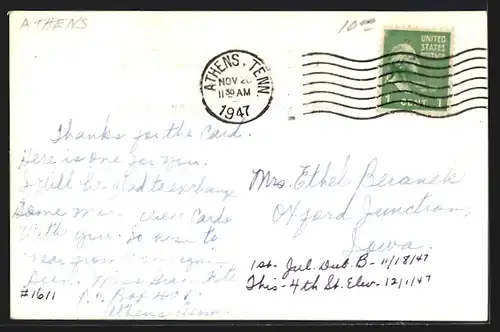 ATHENS
10
UNITED
STATES
POSTAGE
1 CENT 1
ATHENS, TENN.
NOV 20
11 30 AM
1947
Thanks for the Card.
Here is one for you.
I will be glad to exchange
Some More View Cards
With you. So
hear from you
Soon. Miss
P.O. Box
Athens Tenn.
#1611
Mrs. Ethel Beranek
Oxford Junction,
Iowa.
1st- Jul. Dub. B - 11/18/47
This - 4th St. Elev - 12/1/47